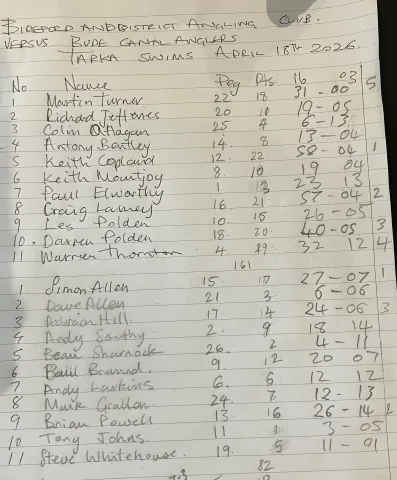 BIDEFORD AND DISTRICT ANGLING CLUB.
VERSUS BUDE CANAL ANGLERS
TARKA SWIMS APRIL 18TH 2026.
No Name Peg Pts. 16 03
1 Martin Turner 22 18 31-00 5
2 Richard Jefferies 20 19-05
3 Colin O'Hagan 25 4 6-13
4 Antony Bentley 14. 8 13-04
5 Keith Copland 12. 22 58-04 1
6 Keith Mountjoy 8. 10 19 04
7 Paul Elworthy 1 13 23 13
8 Craig Lamey 16 21 57-04 2
9 Les Polden 10. 15 26-05
10. Darren Polden 18. 20 40-05 3
11 Warren Thornton 4. 19. 32 12 4
161
1 Simon Allen 15 17 27-07 1
2 Dave Allen 21 3 6-06
3 Adrian Hill 17 14 24-06 3
4 Andy Southy 2. 9 18 14
5 Beau Sharnock 26. 2 4-11
6 Brannd 9 12 20 07
7 Andy Larkins 6. 6 12 12
8 Grallon 24. 8 12-13
9 Brian Powell 13. 16 26-14
10 Tony Johns. 11 1 3-05
11 Steve Whitehouse. 19. 5 11-01
82